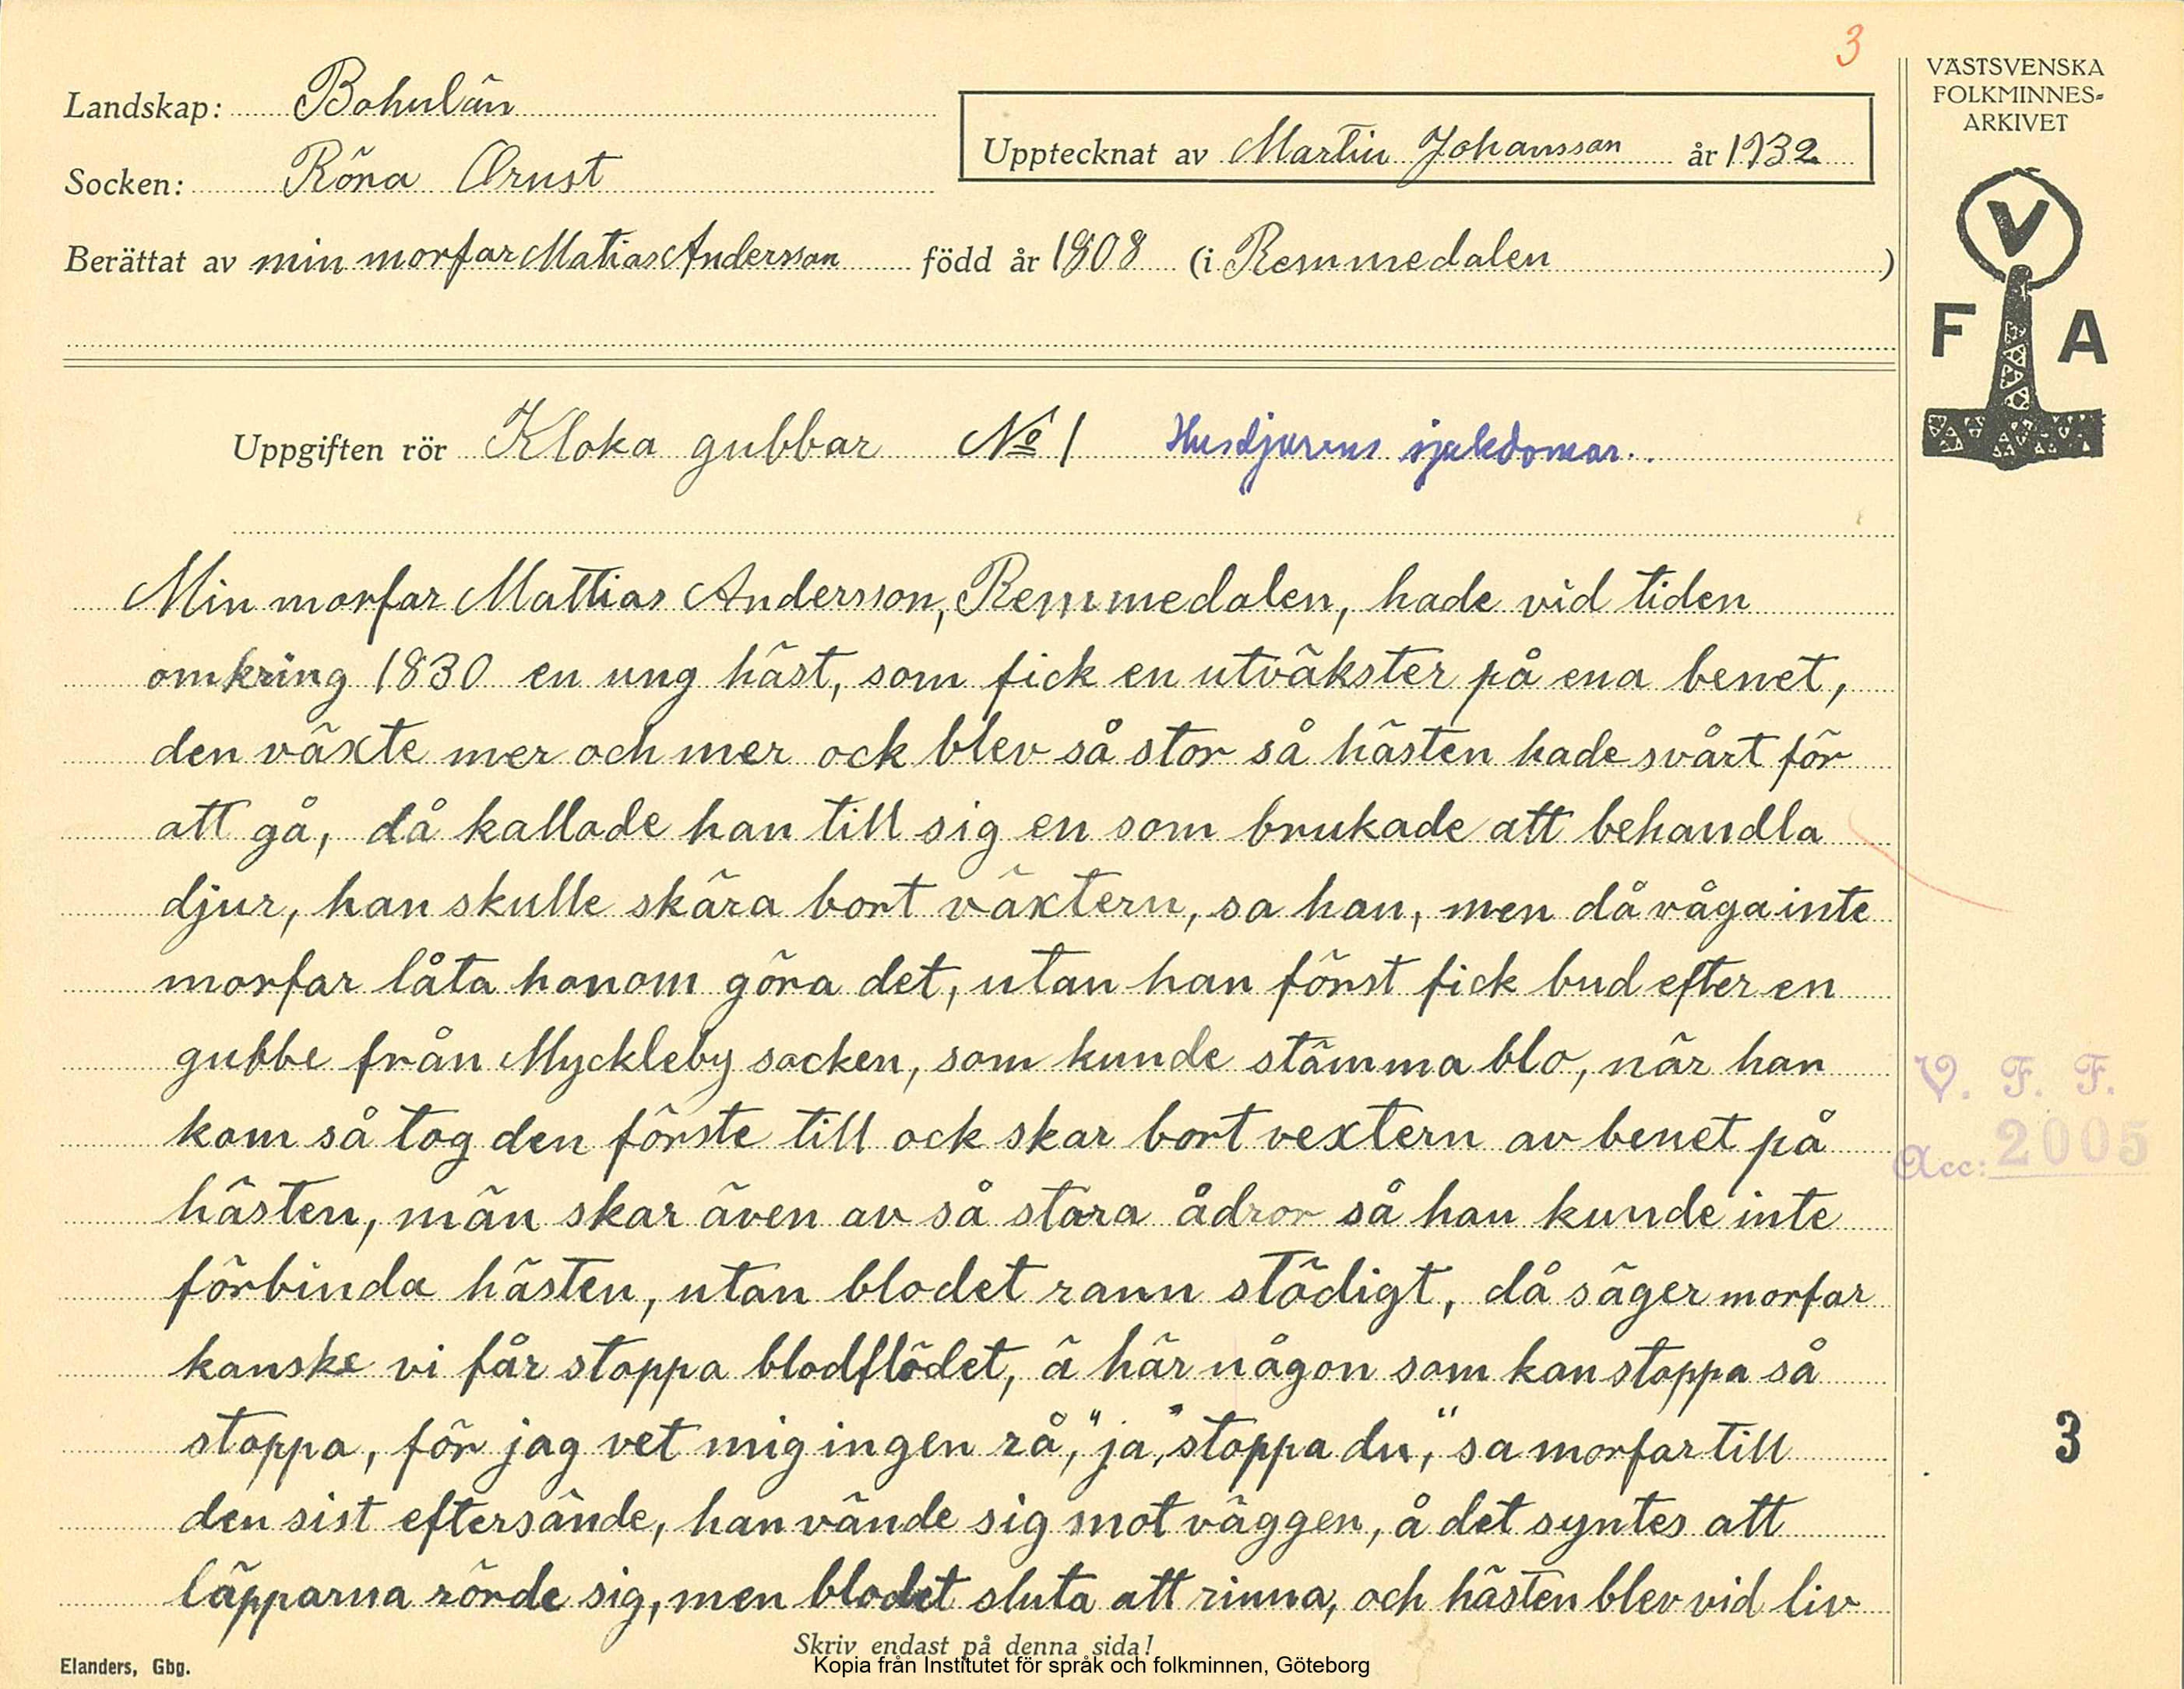 3
Landskap: Bohulän
Socken: Röna Orust
Upptecknat av Martin Johansson år 1932
Berättat av min morfar Matias Andersson född år 1808 (i Remmedalen )
VÄSTSVENSKA
FOLKMINNES=
ARKIVET
V
F A
Uppgiften rör Kloka gubbar No 1 Husdjurens sjukdomar.
Min morfar Mattias Andersson, Remmedalen, hade vid tiden
omkring 1830 en ung häst, som fick en utväkster på ena benet,
den växte mer och mer ock blev så stor så hästen hade svårt för
att gå, då kallade han till sig en som brukade att behandla
djur, han skulle skära bort växtern, sa han, men då våga inte
morfar låta honom göra det, utan han först fick bud efter en
gubbe från Myckleby socken, som kunde stämma blo, när han
kom så tog den förste till ock skar bort vextern av benet på
hästen, män skar även av så stora ådror så han kunde inte
förbinda hästen, utan blodet rann städigt, då säger morfar
kanske vi får stoppa blodflödet, ä här någon som kan stoppa så
stoppa, för jag vet mig ingen rå," ja, "stoppa du," sa morfar till
den sist eftersände, han vände sig mot väggen, å det syntes att
läpparna rörde sig, men blodet sluta att rinna, och hästen blev vid liv
V. F. F.
Acc: 2005
3
Skriv endast på denna sida!
Elanders, Gbg.
Kopia från Institutet för språk och folkminnen, Göteborg